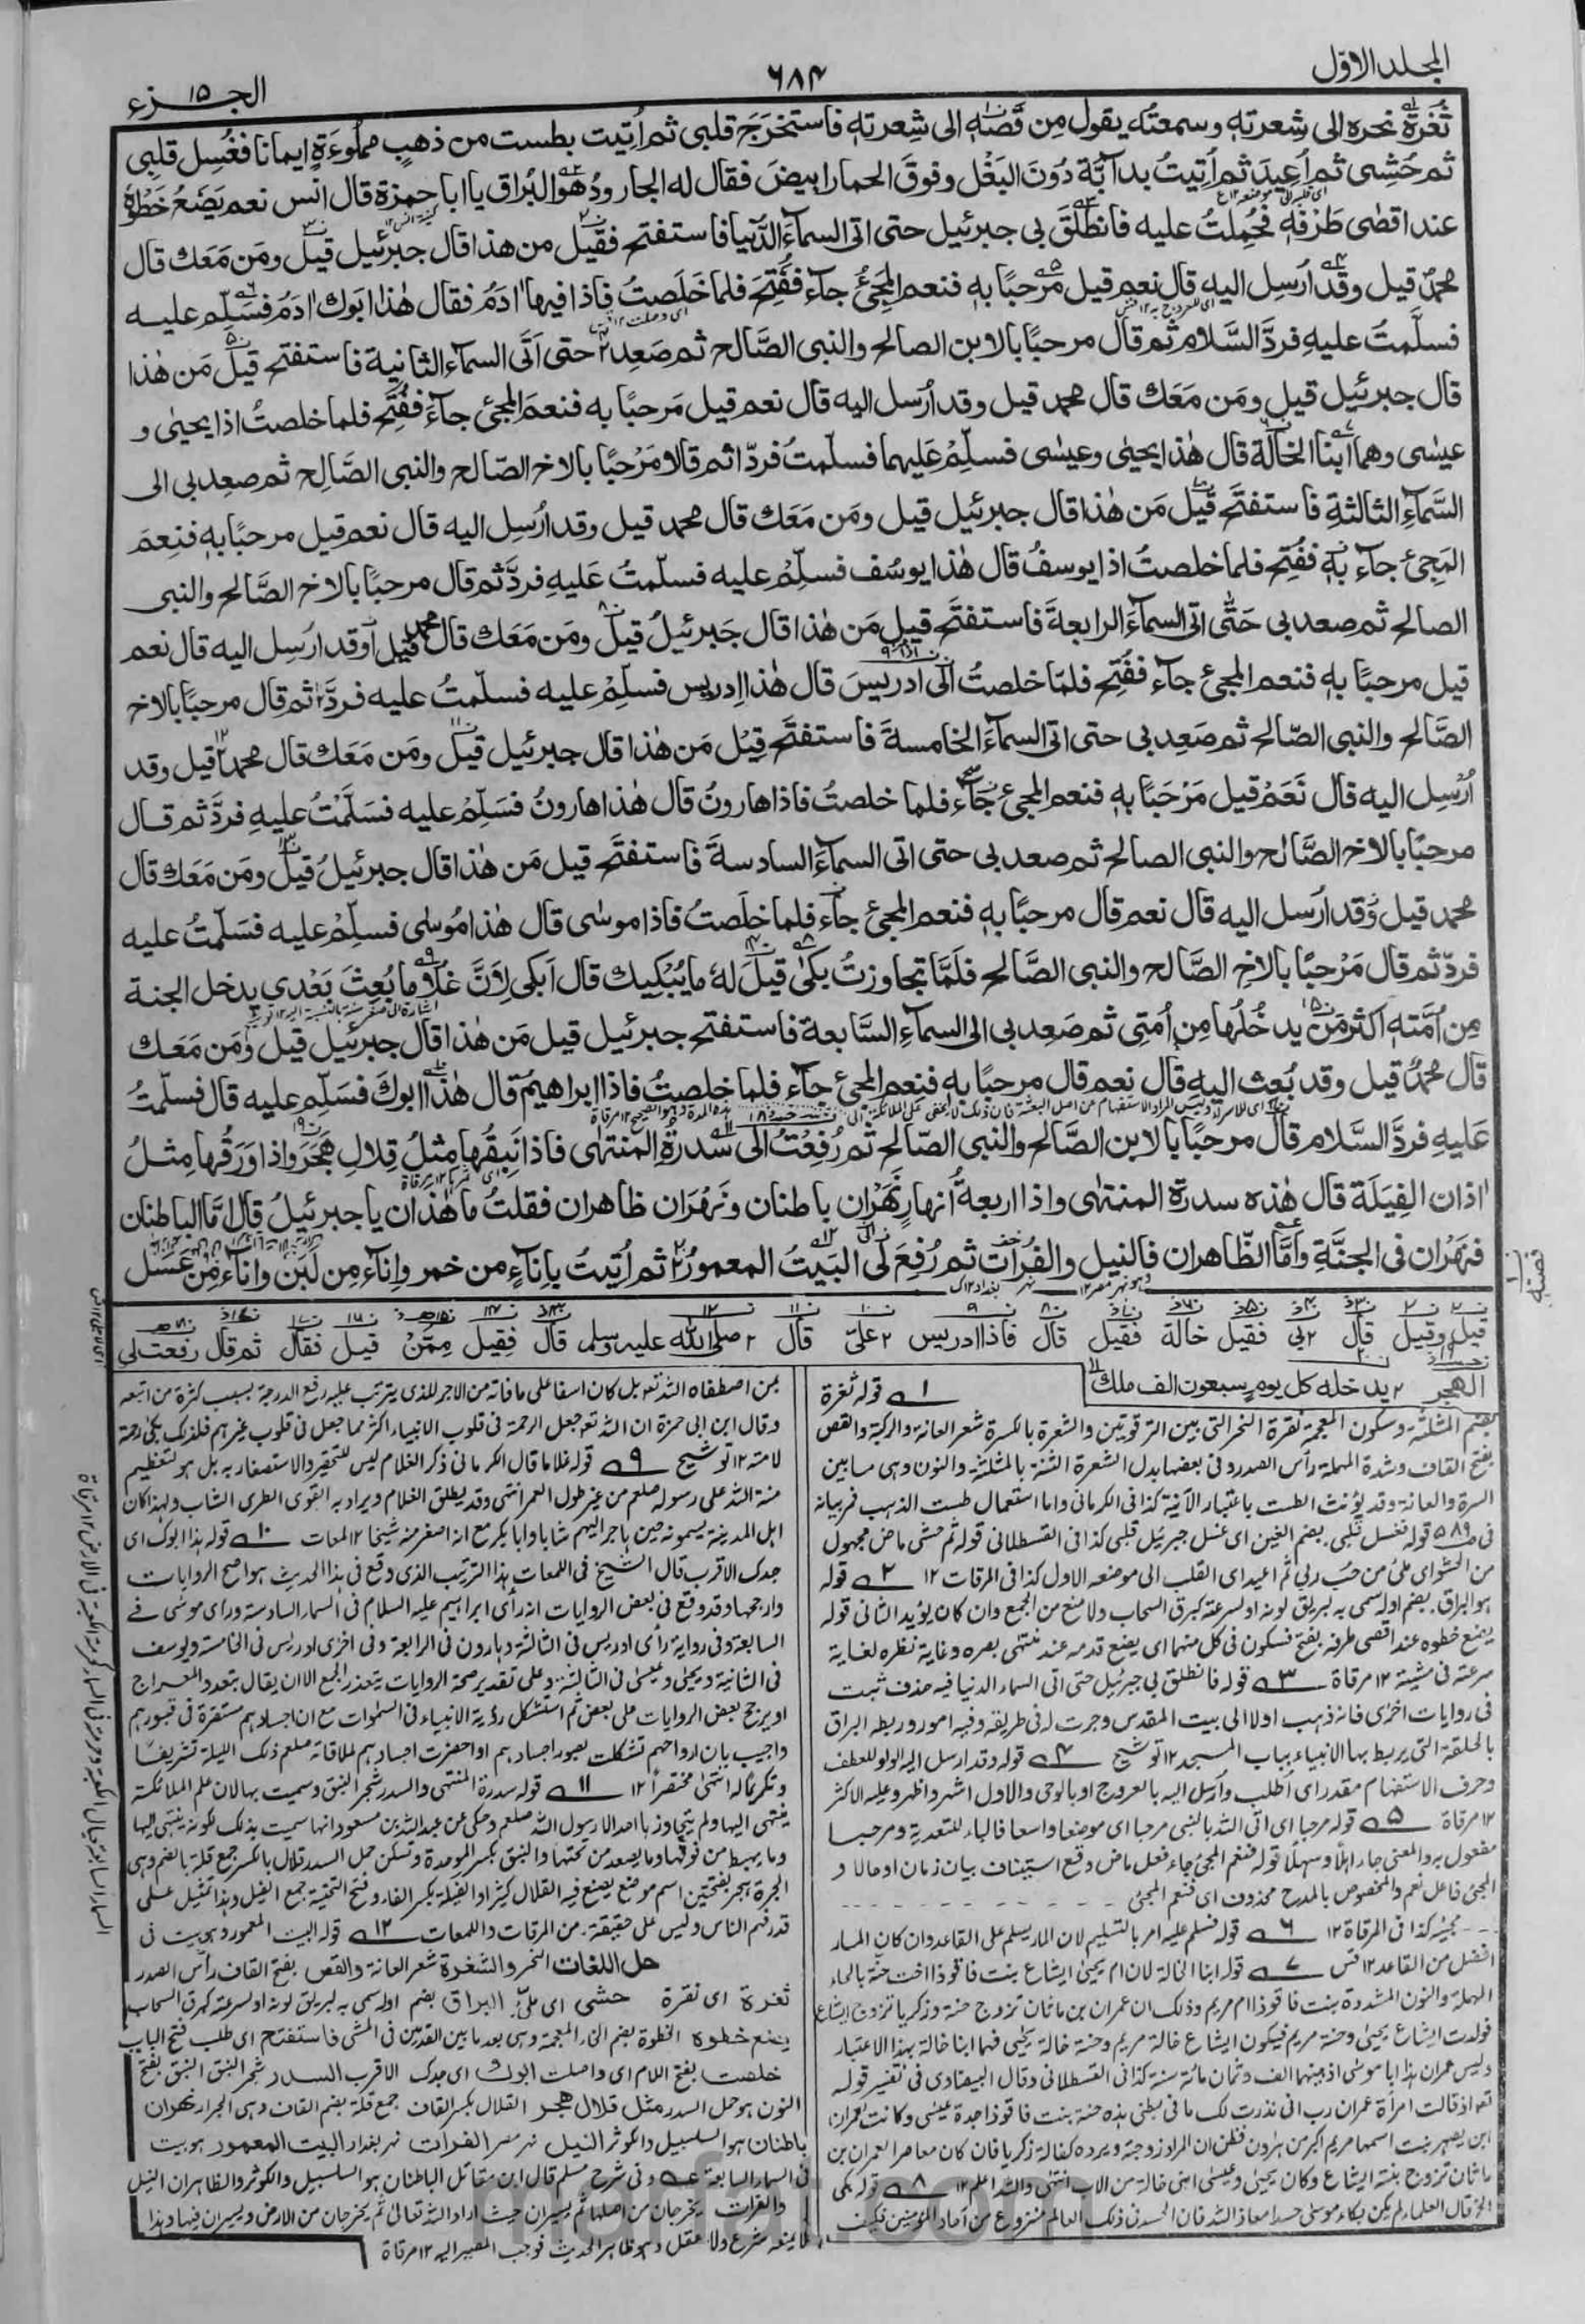 المجلد الاول
٦٨٤
الجزء ١٥
ثُغرة نحره الى شِعرته وسمعته يقول مِن قَصّه الى شِعرته فاستخرَجَ قلبى ثم اُتيت بطست من ذهبٍ مملوءَةٍ ايمانا فغُسِل قلبِى
ثم حُشِى ثم اُعيدَ ثم اُتِيتُ بدآبّة دُونَ البَغْل وفوقَ الحمار ابيضَ فقال له الجارودُ هو البُراق يا ابا حمزة قال انس نعم يَضَعُ خَطْوهٗ
عند اقصٰى طَرْفهٖ فحُمِلتُ عليه فانطلَقَ بى جبرئيل حتى اتى السماءَ الدُّنيا فاستفتح فقيل من هذا قال جبرئيل قيل ومَن مَعَك قال
محمدٌ قيل وقد اُرسِل اليه قال نعم قيل مرحبًا بهٖ فنعم المَجِئُ جآء ففُتِحَ فلما خَلَصتُ فاذا فيها اٰدَمُ فقال هٰذا ابوك اٰدَمُ فسَلِّم عليه
فسلَّمتُ عليهِ فردَّ السَّلام ثم قال مرحبًا بالابن الصالح والنبى الصَّالح ثم صَعِد ٢ حتى اَتَى السماءَ الثانية فاستفتح قيل مَن هٰذا
قال جبرئيل قيل ومَن مَعَك قال محمد قيل وقد اُرسل اليه قال نعم قيل مَرحبًا به فنعمَ المجئ جآءَ ففُتِح فلما خلصتُ اذا يحيٰى و
عيسٰى وهما ابنا الخالَة قال هٰذا يحيٰى وعيسٰى فسلِّمْ عَليهما فسلّمتُ فردّا ثم قالا مَرْحَبًا بالاخ الصّالح والنبى الصَّالِح ثم صعِد بى الى
السَّمآءِ الثالثةِ فاستفتَح قيل مَن هٰذا قال جبرئيل قيل ومَن مَعَك قال محمد قيل وقد اُرسِل اليه قال نعم قيل مرحبًا بهٖ فنِعمَ
المَجِئ جآء بهٖ ففُتِح فلما خلصتُ اذا يوسفُ قال هٰذا يوسُف فسلِّمْ عليه فسلّمتُ عَليهِ فردَّ ثم قال مرحبًا بالاخ الصَّالح والنبى
الصالح ثم صعد بى حَتّٰى اتى السماءَ الرابعةَ فاستفتَح قيل مَن هٰذا قال جَبرئيلُ قيل ومَن مَعَك قال محمد قيل اَوقد ارُسِل اليه قال نعم
قيل مرحبًا بهٖ فنعم المجئ جآء ففُتِح فلمّا خلصتُ الٰى ادريسَ قال هٰذا اِدريس فسلِّمْ عليه فسلّمتُ عليه فردَّ ثم قال مرحبًا بالاخ
الصَّالح والنبى الصّالح ثم صَعِد بى حتى اتى السمآءَ الخامسةَ فاستفتَح قيل مَن هٰذا قال جبرئيل قيل ومَن مَعَك قال محمد ٢ قيل وقد
اُرْسِل اليه قال نَعَمْ قيل مَرْحَبًا بهٖ فنعم المجئ جآء فلما خلصتُ فاذا هارونُ قال هٰذا هارونُ فسَلِّمْ عليه فسَلَّمْتُ عليهِ فردَّ ثم قال
مرحبًا بالاخ الصَّالح والنبى الصالح ثم صعد بى حتى اتى السمآءَ السادسةَ فاستفتَح قيل مَن هٰذا قال جبرئيلُ قيل ومَن مَعَك قال
محمد قيل وقد ارسل اليه قال نعم قال مرحبًا بهٖ فنعم المجئ جآء فلما خلَصتُ فاذا موسٰى قال هٰذا مُوسٰى فسلِّمْ عليه فسَلّمتُ عليه
فردّ ثم قال مَرْحبًا بالاخِ الصَّالح والنبى الصَّالح فلَمَّا تجاوزتُ بكٰى قيلَ لهٗ ما يُبْكِيك قال اَبكى لِاَنَّ غلامًا بُعِثَ بَعْدى يدخل الجنة
مِن اُمَّته اكثر مَن يدخُلُها مِن اُمتِى ثم صَعِد بى الى السمآءِ السَّابعة فاستفتح جبرئيل قيل مَن هٰذا قال جبرئيل قيل ومَن مَعَك
قال محمدٌ قيل وقد بُعِث اليه قال نعم قال مرحبًا به فنِعم المجئ جآء فلما خلصتُ فاذا ابراهيم قال هٰذا ابوكَ فسَلِّم عليه قال فسلّمتُ
عَليهِ فردَّ السَّلام قال مرحبًا بالابن الصَّالح والنبى الصّالح ثم رُفِعْتُ الٰى سدرةِ المنتهٰى فاذا نَبِقُها مِثلُ قِلالِ هَجَر واذا وَرَقُها مِثلُ
اٰذان الفِيَلَة قال هٰذه سدرة المنتهٰى واذا اربعةُ اَنهارٍ نَهْرَانِ باطنان ونَهْرَان ظاهران فقلتُ ما هٰذان يا جبرئيلُ قال امّا الباطنان
فنَهْرَان فى الجنَّةِ واَمَّا الظّاهران فالنيل والفُراتُ ثم رُفِعَ لى البَيتُ المعمورُ ٢ ثم اُتِيتُ بِاِناءٍ من خمر واِناءٍ مِن لَبَنٍ واِناءٍ مِن عَسَل
قيل وقيل قال ٢ بى فقيل خالة فقيل قال فاذا ادريس ٢ علىّ قال ٢ صلى الله عليه وسلم قال فقيل مِمّن قيل فقال ثم قال رفعت لى
الهجر ٢ يدخله كل يوم سبعون الف ملك
١ قوله ثغرة
بضم المثلثة وسكون المعجمة نقرة النحر التى بين الترقوتين والشعرة بالكسرة شعر العانة والركبة والقص
بفتح القاف وشدة المهملة رأس الصدر وفى بعضها بدل الشعرة الثنة بالمثلثة والنون وهى ما بين
السرة والعانة وقد يؤنث الطست باعتبار الآنية كذا فى الكرمانى واما استعمال طست الذهب فمر بيانه
قوله فغسل قلبى بضم الغين اى غسل جبرئيل قلبى كذا فى القسطلانى قوله ثم حشى ماض مجهول
من الحشو اى ملئ من حب ربى ثم اعيد اى القلب الى موضعه الاول كذا فى المرقات ١٢ ٢ قوله
هو البراق بضم اوله سمى به لبريق لونه او لسرعته كبرق السحاب ولا منع من الجمع وان كان يؤيد الثانى قوله
يضع خطوه عند اقصى طرفه بفتح فسكون فى كل منهما اى يضع قدمه عند منتهى بصره وغاية نظره لغاية
سرعته فى مشيته ١٢ مرقاة ٣ قوله فانطلق بى جبرئيل حتى اتى السماء الدنيا فيه حذف ثبت
فى روايات اخرى فانه ذهب اولا الى بيت المقدس وجرت له فى طريقه وفيه امور وربطه البراق
بالحلقة التى يربط بها الانبياء بباب المسجد ١٢ توشيح ٤ قوله وقد ارسل اليه الواو للعطف
وحرف الاستفهام مقدر اى أطلب وأرسل اليه بالعروج او بالوحى والاول اشهر واظهر وعليه الاكثر
١٢ مرقاة ٥ قوله مرحبا اى اتى الله بالنبى مرحبا اى موضعا واسعا فالباء للتعدية ومرحبا
مفعول به والمعنى جاء اهلًا وسهلًا قوله فنعم المجئ جاء فعل ماض وقع استيناف بيان زمان او حالا و
المجئ فاعل نعم والمخصوص بالمدح محذوف اى فنعم المجئ
مجيئه كذا فى المرقاة ١٢ ٦ قوله فسلم عليه امر بالتسليم لان المار يسلم على القاعد وان كان المار
افضل من القاعد ١٢ قس ٧ قوله ابنا الخالة لان ام يحيىٰ ايشاع بنت فاقوذا اخت حنة بالحاء
المهملة والنون المشددة بنت فاقوذا ام مريم وذلك ان عمران بن ماثان تزوج حنة وزكريا تزوج ايشاع
فولدت ايشاع يحيىٰ وحنة مريم فيكون ايشاع خالة مريم وحنة خالة يحيى فهما ابنا خالة بهذا الاعتبار
وليس عمران هذا ابا موسى اذ بينهما الف وثمان مائة سنة كذا فى القسطلانى وقال البيضاوى فى تفسير قوله
تعم اذ قالت امرأة عمران رب انى نذرت لك ما فى بطنى هذه حنة بنت فاقوذا جدة عيسى وكانت لعمران
ابن يصهر بنت اسمها مريم اكبر من هارون فظن ان المراد زوجة ويرده كفالة زكريا فان كان معاصرا لعمران بن
ماثان وتزوج بنته ايشاع وكان يحيىٰ وعيسىٰ ابنى خالة من الاب انتهى والله اعلم ١٢ ٨ قوله بكى
الخ قال العلماء لم يكن بكاء موسى حسدا معاذ الله فان الحسد فى ذلك العالم منزوع من آحاد المؤمنين فكيف
بمن اصطفاه الله تعم بل كان اسفا على ما فاته من الاجر الذى يترتب عليه رفع الدرجة بسبب كثرة من اتبعه
وقال ابن ابى حمزة ان الله تعم جعل الرحمة فى قلوب الانبياء اكثر مما جعل فى قلوب غيرهم فلذلك بكى رحمة
لامته ١٢ توشيح ٩ قوله غلاما قال الكرمانى ذكر الغلام ليس للتحقير والاستصغار به بل هو لتعظيم
منة الله على رسوله صلعم من غير طول العمر انتهى وقد يطلق الغلام ويراد به القوى الطرى الشاب ولهذا كان
اهل المدينة يسمونه حين هاجر اليهم شابا وابا بكر مع انه اصغر منه شيخا ١٢ لمعات ١٠ قوله هذا ابوك اى
جدك الاقرب قال الشيخ فى اللمعات هذا الترتيب الذى وقع فى هذا الحديث هو اصح الروايات
وارجحها وقد وقع فى بعض الروايات انه رأى ابراهيم عليه السلام فى السماء السادسة ورأى موسى فى
السابعة وفى رواية رأى ادريس فى الثالثة وهارون فى الرابعة وفى اخرى ادريس فى الخامسة ويوسف
فى الثانية ويحيىٰ وعيسىٰ فى الثالثة وعلى تقدير صحة الروايات يتعذر الجمع الا ان يقال بتعدد المعراج
او يرجح بعض الروايات على بعض ثم استشكل رؤية الانبياء فى السمٰوات مع ان اجسادهم مستقرة فى قبورهم
واجيب بان ارواحهم تشكلت بصور اجسادهم او احضرت اجسادهم لملاقاته صلعم ذلك الليلة تشريفًا
وتكرمًا له انتهى مختصرًا ١٢ ١١ قوله سدرة المنتهى والسدر شجر النبق وسميت بها لان علم الملائكة
ينتهى اليها ولم يتجاوزها احد الا رسول الله صلعم وحكى عن عبد الله بن مسعود انها سميت بذلك لكونه ينتهى اليها
وما يهبط من فوقها وما يصعد من تحتها والنبق بكسر الموحدة وتسكن حمل السدر قلال بالكسر جمع قلة بالضم وهى
الجرة وهجر بفتحتين اسم موضع يصنع فيه القلال كثيرًا والفيلة بكسر الفاء وفتح التحتية جمع الفيل وهذا تمثيل على
قدر فهم الناس وليس على حقيقة من المرقات واللمعات ١٢ ١٢ قوله البيت المعمور وهو بيت فى
حل اللغات النحر والشعرة شعر العانة والقص بفتح القاف رأس الصدر
ثغرة اى نقرة حشى اى ملئ البراق بضم اوله سمى به لبريق لونه او لسرعته كبرق السحاب
يضع خطوه الخطوة بضم الخاء المعجمة وهى بعد ما بين القدمين فى المشى فاستفتح اى طلب فتح الباب
خلصت بفتح اللام اى واصلت ابوك اى جدك الاقرب السدر شجر النبق النبق بفتح
النون هو حمل السدر مثل قلال هجر القلال بكسر القاف جمع قلة بضم القاف وهى الجرار نهران
باطنان هو السلسبيل والكوثر النيل نهر مصر الفرات نهر بغداد البيت المعمور هو بيت
فى السماء السابعة عه وفى شرح مسلم قال ابن مقاتل الباطنان هو السلسبيل والكوثر والظاهران النيل
والفرات يخرجان من اصلها ثم يسيران حيث اراد الله تعالىٰ ثم يخرجان من الارض ويسيران فيها وهذا
لا يمنعه شرع ولا عقل وهو ظاهر الحديث فوجب المصير اليه ١٢ مرقاة